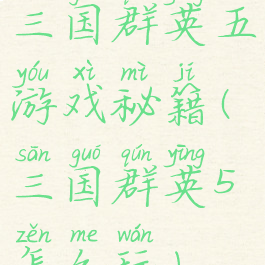 三国群英五
yóu xì mì jí
游戏秘籍(
sān guó qún yīng
三国群英5
zěn me wán
怎么玩)